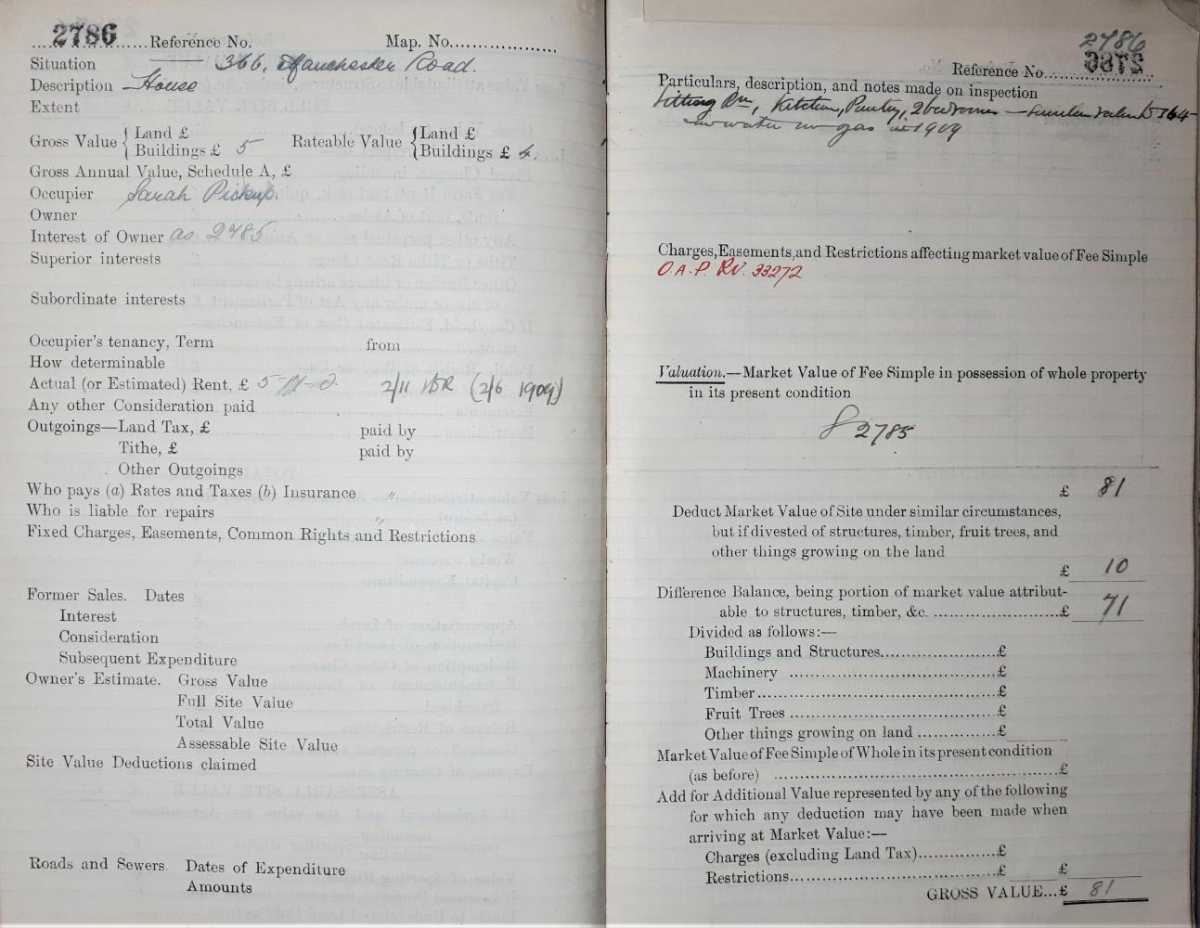 2786 Reference No. Map. No.
Situation 366, Manchester Road.
Description House
Extent
Gross Value { Land £
Buildings £ 5
Rateable Value { Land £
Buildings £ 4.
Gross Annual Value, Schedule A, £
Occupier Sarah Pickup.
Owner
Interest of Owner as 2785
Superior interests
Subordinate interests
Occupier's tenancy, Term from
How determinable
Actual (or Estimated) Rent, £ 2/11 (2/6 1909)
Any other Consideration paid
Outgoings—Land Tax, £ paid by
Tithe, £ paid by
Other Outgoings
Who pays (a) Rates and Taxes (b) Insurance "
Who is liable for repairs "
Fixed Charges, Easements, Common Rights and Restrictions
Former Sales. Dates
Interest
Consideration
Subsequent Expenditure
Owner's Estimate. Gross Value
Full Site Value
Total Value
Assessable Site Value
Site Value Deductions claimed
Roads and Sewers. Dates of Expenditure
Amounts
2786
Reference No.
Particulars, description, and notes made on inspection
Sitting Rm, Kitchen, Pantry, 2 bedrooms —
no water no gas in 1909
Charges, Easements, and Restrictions affecting market value of Fee Simple
O.A.P. RV. 33272
Valuation.—Market Value of Fee Simple in possession of whole property
in its present condition
2785
£ 81
Deduct Market Value of Site under similar circumstances,
but if divested of structures, timber, fruit trees, and
other things growing on the land
£ 10
Difference Balance, being portion of market value attribut-
able to structures, timber, &c. £ 71
Divided as follows:—
Buildings and Structures £
Machinery £
Timber £
Fruit Trees £
Other things growing on land £
Market Value of Fee Simple of Whole in its present condition
(as before) £
Add for Additional Value represented by any of the following
for which any deduction may have been made when
arriving at Market Value:—
Charges (excluding Land Tax) £
Restrictions £ £
GROSS VALUE...£ 81